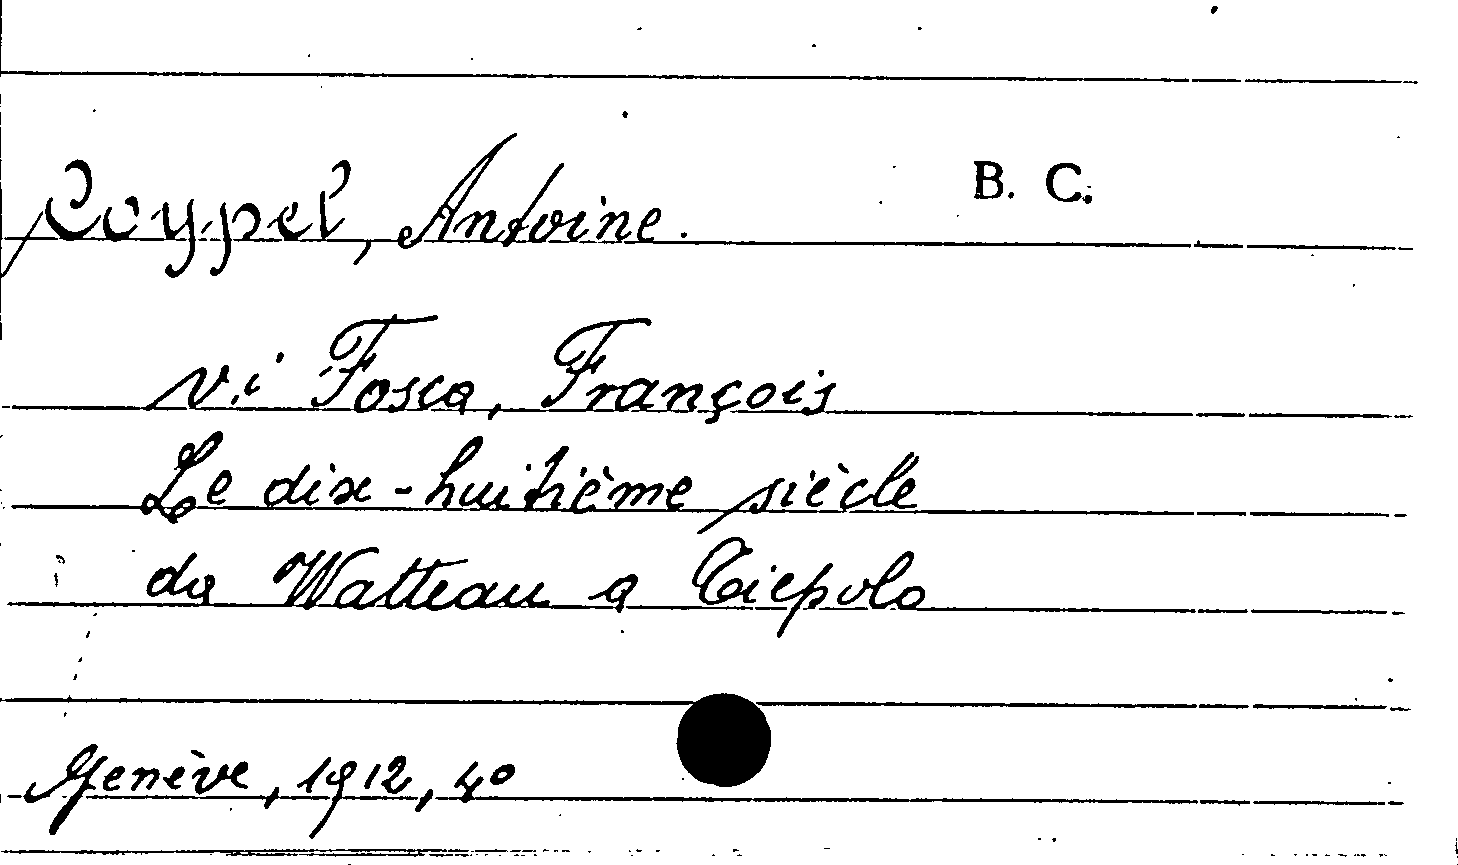 Coypel, Antoine. B. C.
v.i Fosca, François
Le dix-huitième siècle
da Watteau a Tiepolo
Genève, 1912, 4º